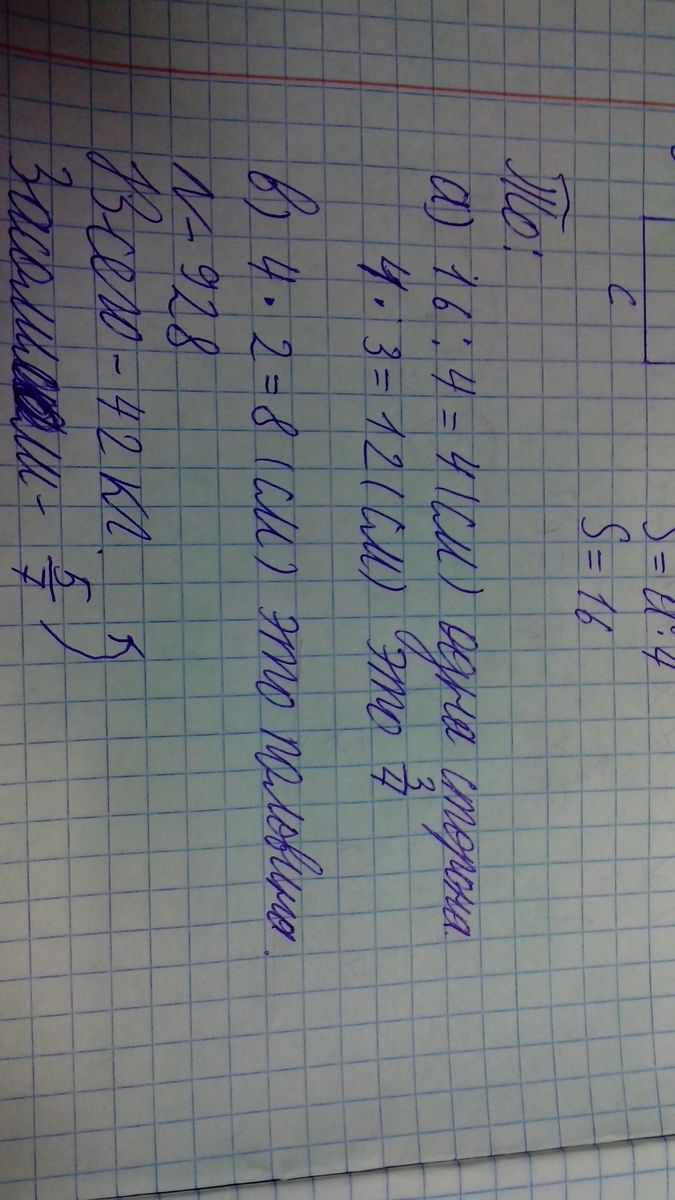 S = a · 4
c S = 16
То:
а) 16 : 4 = 4 (см) одна сторона.
4 · 3 = 12 (см) это 3/4
в) 4 · 2 = 8 (см) это половина.
N - 928
Всего - 42 кг
Засолили - 5/7